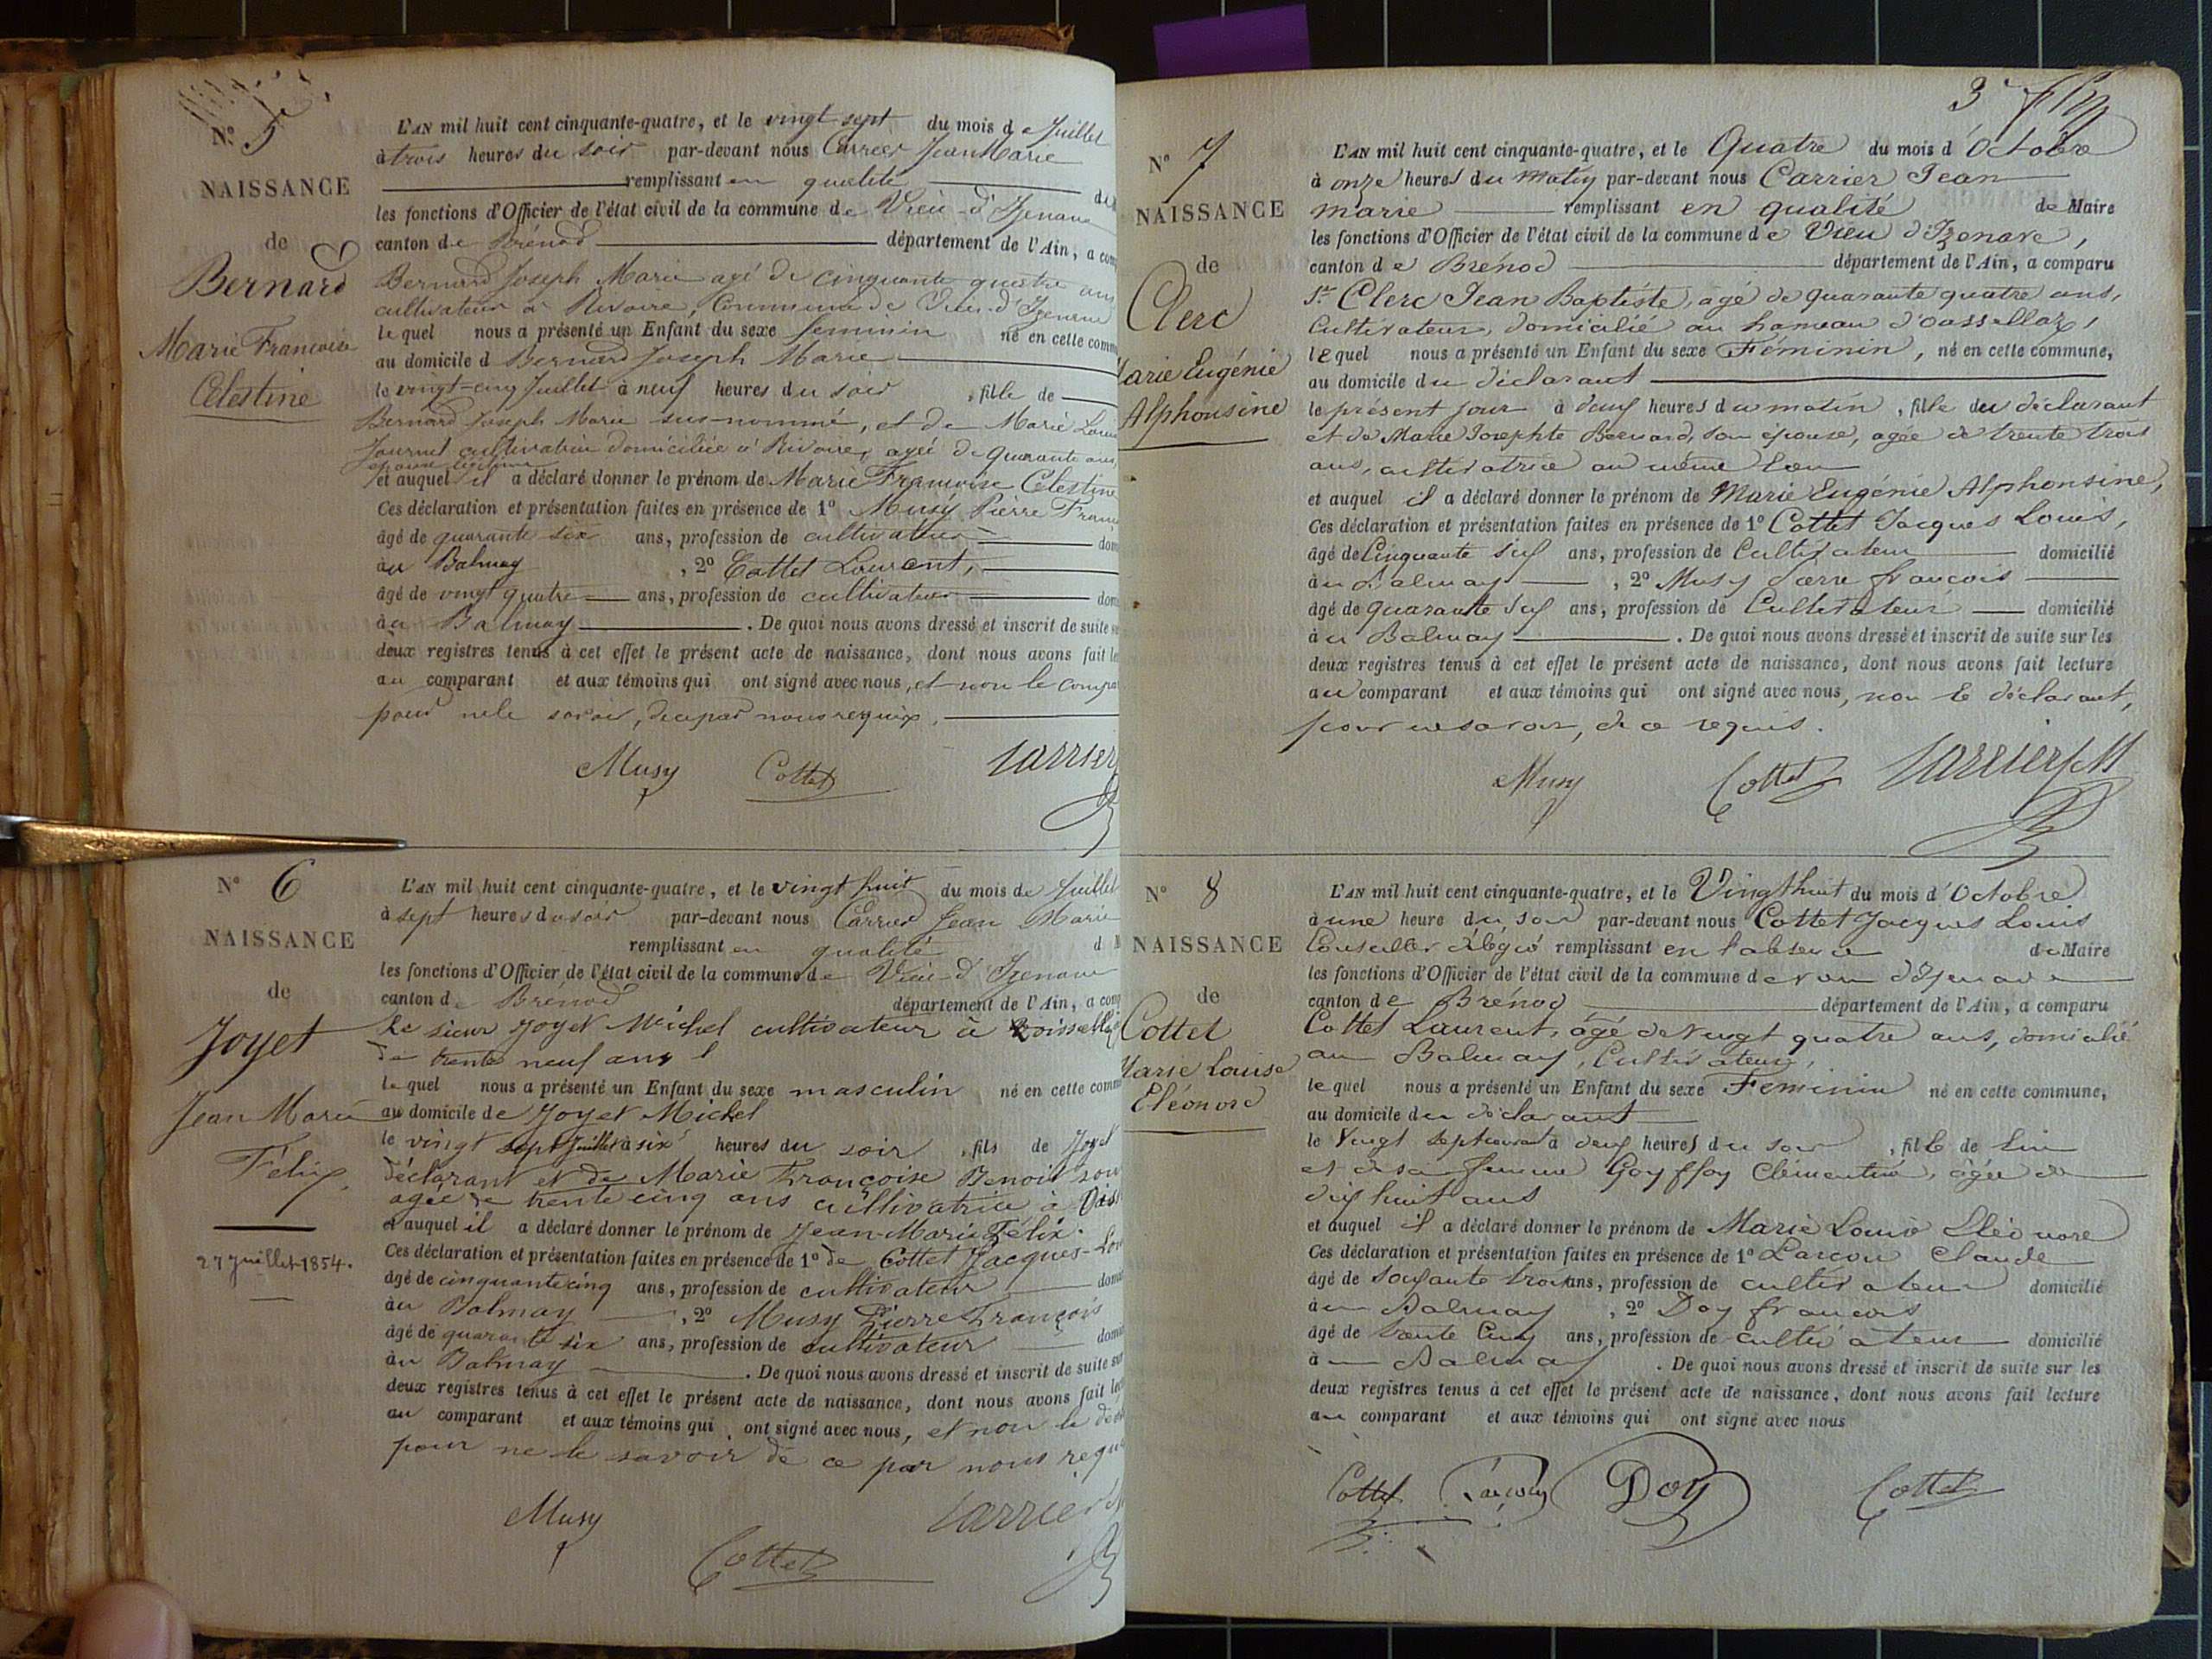 N° 5
NAISSANCE
de
Bernard
Marie Francoise
Célestine
L'AN mil huit cent cinquante-quatre, et le vingt sept du mois de Juillet
à trois heures du soir par-devant nous Carrier Jean Marie
remplissant en qualité de
les fonctions d'Officier de l'état civil de la commune de Vieu-d'Izenave
canton de Brénod département de l'Ain, a com
Bernard Joseph Marie agé de cinquante quatre ans
cultivateur à Rivoire, Commune de Vieu-d'Izenave
lequel nous a présenté un Enfant du sexe feminin né en cette comm
au domicile d Bernard Joseph Marie
le vingt-cinq Juillet à neuf heures du soir, fille de
Bernard Joseph Marie sus-nommé, et de Marie Loui
Journet cultivatrice domiciliée à Rivoire, agée de quarante ans,
épouse légitime
et auquel il a déclaré donner le prénom de Marie Françoise Célestine
Ces déclaration et présentation faites en présence de 1° Musy Pierre Franç
âgé de quarante six ans, profession de cultivateur dom
au Balmay, 2° Cottet Laurent,
âgé de vingt quatre ans, profession de cultivateur dom
au Balmay. De quoi nous avons dressé et inscrit de suite s
deux registres tenus à cet effet le présent acte de naissance, dont nous avons fait le
au comparant et aux témoins qui ont signé avec nous, et non le compa
pour ne le savoir, de ce par nous requis.
Musy Cottet Carrier
N° 6
NAISSANCE
de
Joyet
Jean Marie
Félix,
27 Juillet 1854.
L'AN mil huit cent cinquante-quatre, et le vingt huit du mois de Juillet
à sept heures du soir par-devant nous Carrier Jean Marie
remplissant en qualité d M
les fonctions d'Officier de l'état civil de la commune de Vieu-d'Izenave
canton de Brénod département de l'Ain, a comp
Le sieur Joyet Michel cultivateur à
de trente neuf ans
lequel nous a présenté un Enfant du sexe masculin né en cette comm
au domicile de Joyet Michel
le vingt sept Juillet à six heures du soir, fils de Joyet
déclarant et de Marie Françoise Benoit son
agée de trente cinq ans cultivatrice à
et auquel il a déclaré donner le prénom de Jean-Marie Félix.
Ces déclaration et présentation faites en présence de 1° de Cottet Jacques-Lou
âgé de cinquante cinq ans, profession de cultivateur domi
au Balmay, 2° Musy Pierre François
âgé de quarante six ans, profession de cultivateur domi
au Balmay. De quoi nous avons dressé et inscrit de suite sur
deux registres tenus à cet effet le présent acte de naissance, dont nous avons fait lec
au comparant et aux témoins qui ont signé avec nous, et non le décl
pour ne le savoir de ce par nous requ
Musy Carrier
Cottet
N° 7
NAISSANCE
de
Clerc
Marie Eugénie
Alphonsine
L'AN mil huit cent cinquante-quatre, et le Quatre du mois d'Octobre
à onze heures du matin par-devant nous Carrier Jean
marie remplissant en qualité de Maire
les fonctions d'Officier de l'état civil de la commune de Vieu d'Izenave,
canton de Brénod département de l'Ain, a comparu
Sr Clerc Jean Baptiste, agé de quarante quatre ans,
Cultivateur, domicilié au hameau d'oassellaz,
lequel nous a présenté un Enfant du sexe Féminin, né en cette commune,
au domicile du déclarant
le présent jour à deux heures du matin, fille du déclarant
et de Marie Josephte Bernard, son épouse, agée de trente trois
ans, cultivatrice au même lieu
et auquel il a déclaré donner le prénom de Marie Eugénie Alphonsine,
Ces déclaration et présentation faites en présence de 1° Cottet Jacques Louis,
âgé de Cinquante six ans, profession de Cultivateur domicilié
au Balmay, 2° Musy Pierre françois
âgé de quarante six ans, profession de Cultivateur domicilié
au Balmay. De quoi nous avons dressé et inscrit de suite sur les
deux registres tenus à cet effet le présent acte de naissance, dont nous avons fait lecture
au comparant et aux témoins qui ont signé avec nous, non le déclarant,
pour ne savoir, de ce requis.
Musy Cottet Carrier JM
N° 8
NAISSANCE
de
Cottet
Marie Louise
Eléonore
L'AN mil huit cent cinquante-quatre, et le Vingt huit du mois d'Octobre
à une heure du soir par-devant nous Cottet Jacques Louis
Conseiller délégué remplissant en l'absence du Maire
les fonctions d'Officier de l'état civil de la commune de vieu d'Izenave
canton de Brénod département de l'Ain, a comparu
Cottet Laurent, âgé de vingt quatre ans, domicilié
au Balmay, Cultivateur,
lequel nous a présenté un Enfant du sexe Feminin né en cette commune,
au domicile du déclarant
le Vingt sept courant à deux heures du soir, fille de lui
et de sa femme Goyffoy Clémentine, agée de
dix huit ans
et auquel il a déclaré donner le prénom de Marie Louise Eléonore
Ces déclaration et présentation faites en présence de 1° Larçon Claude
âgé de soixante trois ans, profession de cultivateur domicilié
au Balmay, 2° Doy françois
âgé de trente Cinq ans, profession de cultivateur domicilié
au Balmay. De quoi nous avons dressé et inscrit de suite sur les
deux registres tenus à cet effet le présent acte de naissance, dont nous avons fait lecture
au comparant et aux témoins qui ont signé avec nous
Cottet Larçon Doy Cottet